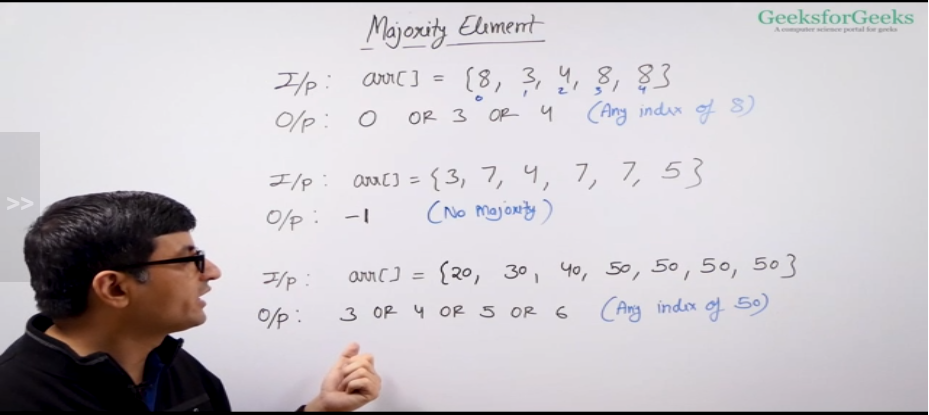 GeeksforGeeks
A computer science portal for geeks
Majority Element
I/p : arr[] = {8, 3, 4, 8, 8}
0 1 2 3 4
O/p : 0 OR 3 OR 4 (Any index of 8)
I/p : arr[] = {3, 7, 4, 7, 7, 5}
O/p : -1 (No Majority)
I/p : arr[] = {20, 30, 40, 50, 50, 50, 50}
O/p : 3 OR 4 OR 5 OR 6 (Any index of 50)
>>